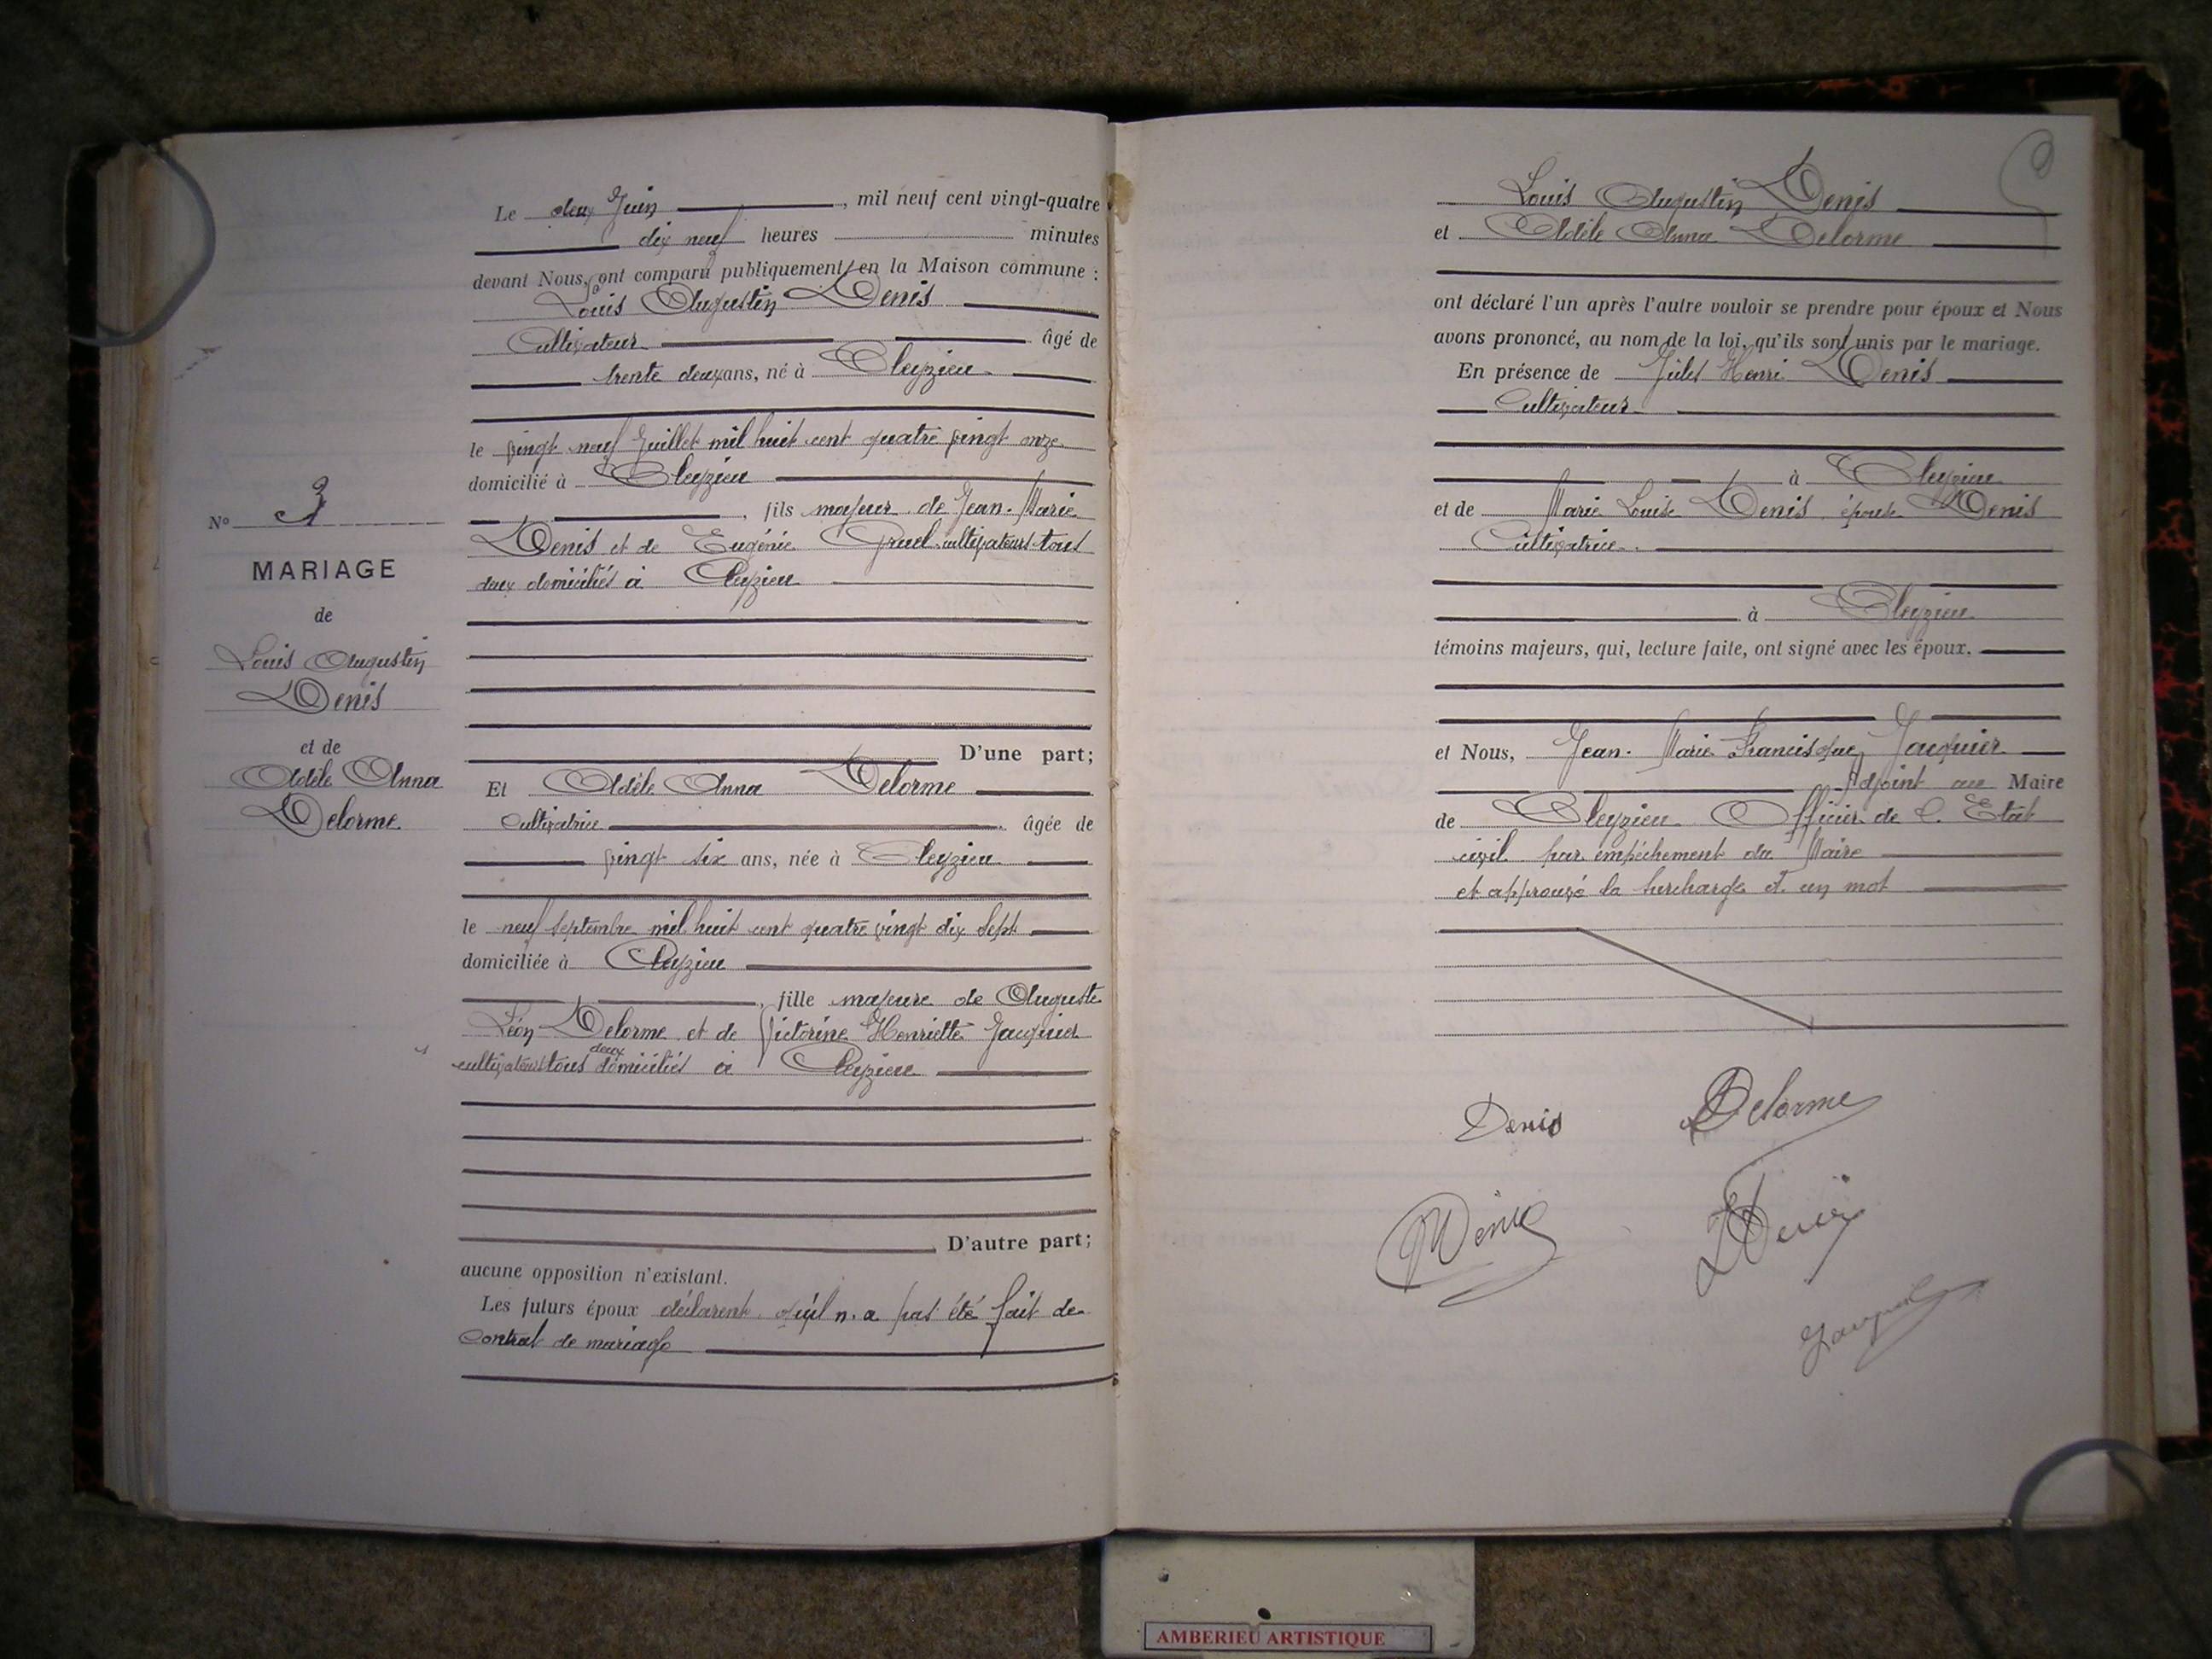 N° 3
MARIAGE
de
Louis Augustin
Denis
et de
Adèle Anna
Delorme
Le deux Juin, mil neuf cent vingt-quatre
dix neuf heures minutes
devant Nous, ont comparu publiquement en la Maison commune :
Louis Augustin Denis
Cultivateur âgé de
trente deux ans, né à Cleyzieu
le vingt neuf Juillet mil huit cent quatre vingt onze
domicilié à Cleyzieu
, fils majeur de Jean-Marie
Denis et de Eugénie Gruel cultivateurs tous
deux domiciliés à Cleyzieu
D'une part;
Et Adèle Anna Delorme
Cultivatrice, âgée de
vingt six ans, née à Cleyzieu
le neuf septembre mil huit cent quatre vingt dix sept
domiciliée à Cleyzieu
, fille majeure de Auguste
Léon Delorme et de Victorine Henriette Jacquier
cultivateurs tous deux domiciliés à Cleyzieu
D'autre part;
aucune opposition n'existant.
Les futurs époux déclarent qu'il n'a pas été fait de
Contrat de mariage
Louis Augustin Denis
et Adèle Anna Delorme
ont déclaré l'un après l'autre vouloir se prendre pour époux et Nous
avons prononcé, au nom de la loi, qu'ils sont unis par le mariage.
En présence de Jules Henri Denis
Cultivateur
à Cleyzieu
et de Marie Louise Denis épouse Denis
Cultivatrice
à Cleyzieu
témoins majeurs, qui, lecture faite, ont signé avec les époux.
et Nous, Jean-Marie Francisque Jacquier
Adjoint au Maire
de Cleyzieu Officier de l'Etat
civil par empêchement du Maire
et approuvé la surcharge d'un mot
Denis Delorme
Denis Denis
Jacquier
AMBERIEU ARTISTIQUE